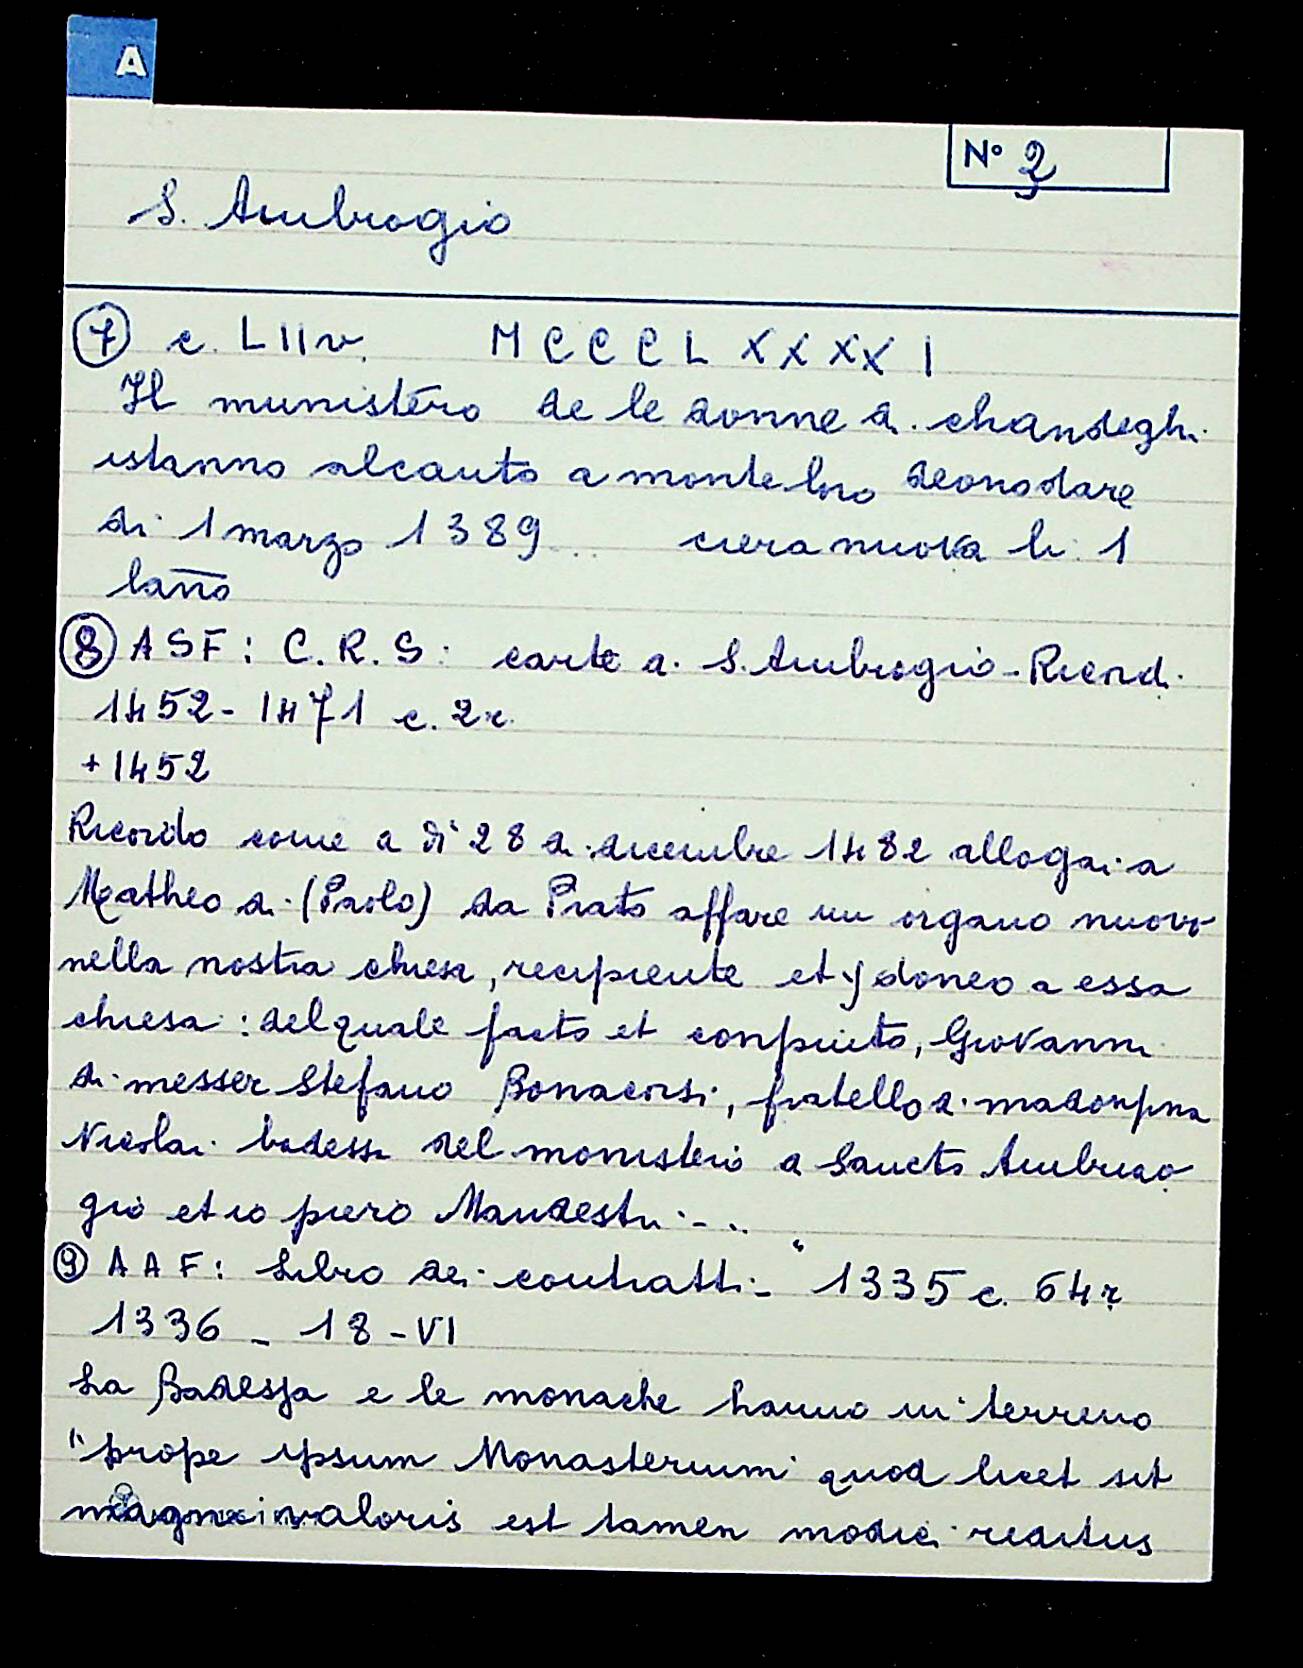 A
N° 2
S. Ambrogio
7 c. LIIv. MCCCLXXXXI
Il munistēro de le donne di chandeghi
istanno alcanto a monte loro deono dare
di 1 marzo 1389... ciera nuova li. 1
lan̄o
8 ASF: C.R.S: carte di S. Ambrogio - Ricord.
1452-1471 c. 2r.
+1452
Ricordo come a dì 28 di dicembre 1482 allogai a
Matheo di (Paolo) da Prato affare un organo nuovo
nella nostra chiesa, recipiente et ydoneo a essa
chiesa: del quale facto et conpiuto, Giovanni
di messer Stefano Bonacorsi, fratello di madonna
Nicolai badessa del monisterio di Sancto Ambruo
gio et io piero Mandestri...
9 AAF: Libro dei contratti - " 1335 c. 64r
1336 - 18-VI
La Badessa e le monache hanno un terreno
"prope ipsum Monasterium quod licet sit
magni valoris est tamen modici reditus